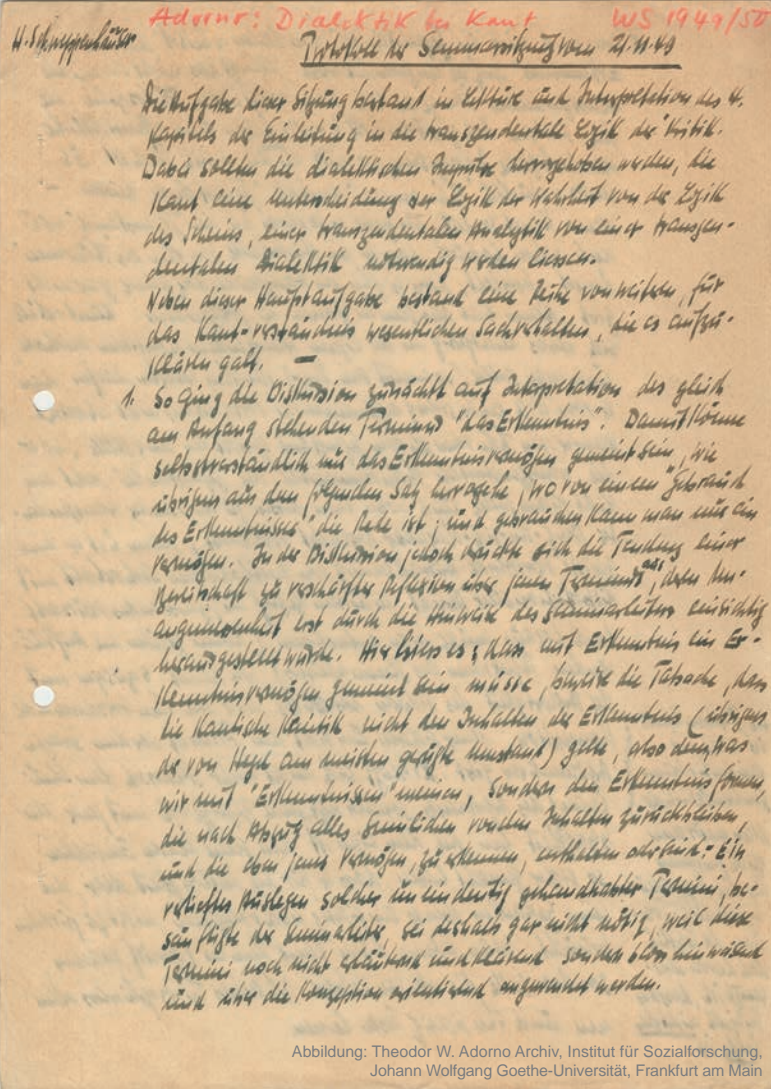 Adorno: Dialektik bei Kant WS 1949/50
H. Schweppenhäuser
Protokoll der Seminarsitzung vom 21.11.49
Die Aufgabe dieser Sitzung bestand in Lektüre und Interpretation des 4.
Kapitels der Einleitung in die transzendentale Logik der Kritik.
Dabei sollten die dialektischen Impulse hervorgehoben werden, die
Kant eine Unterscheidung der Logik der Wahrheit von der Logik
des Scheins, einer transzendentalen Analytik von einer transzen-
dentalen Dialektik notwendig werden liessen.
Neben dieser Hauptaufgabe bestand eine Reihe von weitern, für
das Kant-verständnis wesentlichen Sachverhalten, die es aufzu-
klären galt. —
1. So ging die Diskussion zunächst auf Interpretation des gleich
am Anfang stehenden Terminus "das Erkenntnis". Damit könne
selbstverständlich nur das Erkenntnisvermögen gemeint sein, wie
übrigens aus dem folgenden Satz hervorgehe, wo von einem "Gebrauch
des Erkenntnisses" die Rede ist; und gebrauchen kann man nur ein
Vermögen. In der Diskussion jedoch drückte sich die Tendenz einer
Bereitschaft zu verschärfter Reflexion über jenen Terminus aus, deren Un-
angemessenheit erst durch die Hinweise des Seminarleiters einsichtig
herausgestellt wurde. Hier hiess es: dass mit Erkenntnis ein Er-
kenntnisvermögen gemeint sein müsse, beweise die Tatsache, dass
die Kantische Kritik nicht den Inhalten der Erkenntnis (übrigens
der von Hegel am meisten gerügte Umstand) gelte, also dem, was
wir mit "Erkenntnissen" meinen, sondern den Erkenntnisformen,
die nach Abzug alles Sinnlichen von den Inhalten zurückbleiben,
und die eben jenes Vermögen, zu erkennen, enthalten oder sind. - Ein
vertieftes Auslegen solcher uneindeutig gehandhabter Termini, be-
sänftigte der Seminarleiter, sei deshalb gar nicht nötig, weil diese
Termini noch nicht erläuternd und klärend sondern bloss hinweisend
und über die Konzeption orientierend angewendet werden.
Abbildung: Theodor W. Adorno Archiv, Institut für Sozialforschung,
Johann Wolfgang Goethe-Universität, Frankfurt am Main